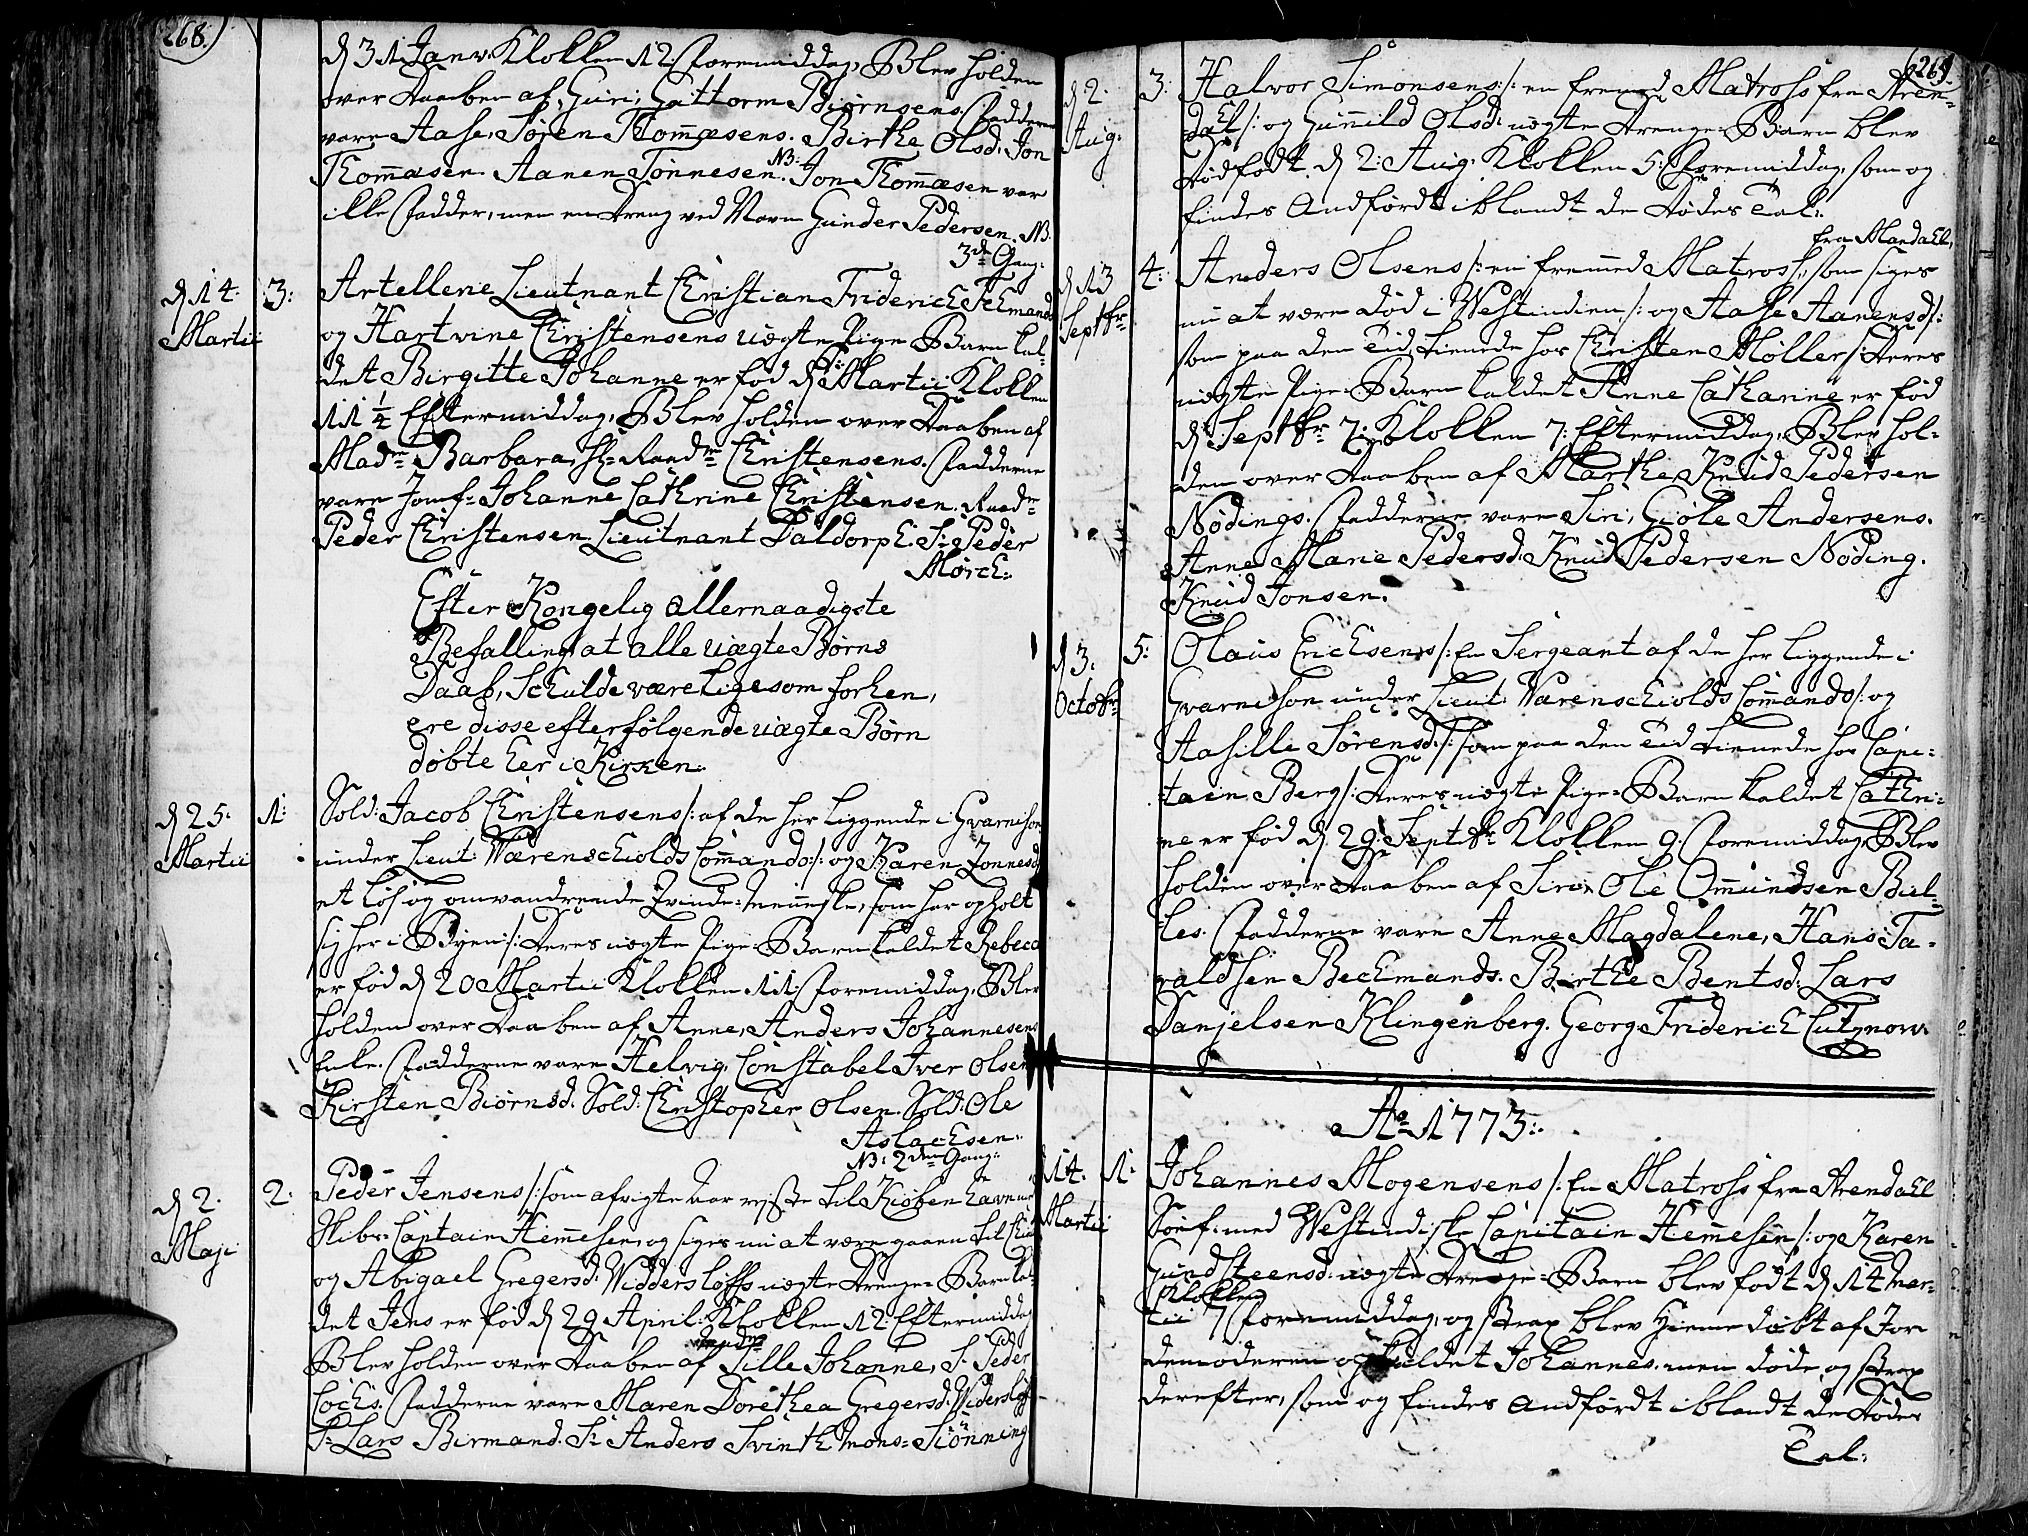 268.
d 31 Janv. Klokken 12 Formiddag, Blev holden
over Daaben af, Guri; Guttorm Biørnsens. Fadderne
vare Aase, Søren Thommæsens. Birthe Olsd: Jon
Thommæsen. Aanen Tønnesen. NB: Jon Thommæsen var
ikke Fadder, men en Dreng ved Navn Gunder Pedersen. NB.
3de Gang:
d 14: Martii 3: Artellerie Lieutnant Christian Friderich
og Hartvine Christensens uægte Pige Barn kal-
det Birgitte Johanne er fød d Martii Klokken
11 1/2 Eftermiddag, Blev holden over Daaben af
Madme Barbara, Sl: Raadm Christensens. Fadderne
vare Jomf: Johanne Cathrine Christensen. Raadm
Peder Christensen Lieutnant Daldorph. Sr Peder
Mørch:
Efter Kongelig Allernaadigste
Befalling at alle uægte Børns
Daab, Schulde være ligesom forhen,
ere disse efterfølgende uægte Børn
døbte Her i Kirken:
d 25: Martii 1: Sold: Jacob Christensens /: af de her liggende i Gvarnison
under Lieut: Wærenschiolds Commando :/ og Karen Jonnesd
et løs og omvandrende Qvinde-Menniske, som har opholt
sig her i Byen :/ Deres uægte Pige-Barn kaldet Rebeca
er fød d 20 Martii Klokken 11: Formiddag, Blev
holden over Daaben af Anne, Anders Johannesens
Enke. Fadderne vare Helvig, Constabel Iver Olsens
Kirsten Biørnsd: Sold: Christopher Olsen. Sold: Ole
Aslachsen:
NB: 2den Gang:
d 2. Maji 2: Peder Jensens /: som afvigte Aar reiste til Kiøbenhavn med
Skibs-Captain Hemmesen, og siges nu at være gaaen til
og Abigael Gregersd: Widdersløffs uægte Drenge-Barn kal-
det Jens er fød d 29 April: Klokken 12: Eftermiddag
Blev holden over Daaben af Sille Johanne, Sr Peder
Lochs. Fadderne vare Maren Dorethea Gregersd: Widersløf
Sr Lars Birmand. Sr Anders Svinth Mons: Siønning
269.
d 2. Aug: 3: Halvor Simonsens /: en fremed Matross fra Aren-
dal :/ og Gunnild Olsd: uægte Drenge-Barn blev
Dødfødt d 2: Aug: Klokken 5: Formiddag, som og
findes Andført iblandt de Dødes Tal:
fra Mandahl,
d 13 Septbr 4: Anders Olsens /: en fremmed Matross, som siges
nu at være død i Westindien :/ og Aase Aanensd /:
som paa den Tid tienede hos Christen Møller :/ Deres
uægte Pige-Barn kaldet Anne Catharine er fød
d Septbr 7: Klokken 7: Eftermiddag, Blev hol-
den over Daaben af Marthe, Knud Pedersen
Nødings. Fadderne vare Siri, Giøle Andersens.
Anne Marie Pedersd: Knud Pedersen Nøding.
Knud Jonsen.
d 3. Octobr 5: Olaus Erichsens /: En Sergeant af de her liggende i
Gvarnison under Lieut: Warenschiolds Commando :/ og
Aasille Sørensd: /: som paa den Tid tienede hos Capi-
tain Berg :/ Deres uægte Pige-Barn kaldet Cathri-
ne er fød d 29 Septbr Klokken 9. Formiddag, Blev
holden over Daaben af Siri, Ole Ommundsen Biel-
kes. Fadderne vare Anne Magdalene, Hans Ta-
raldsen Bechmands. Birthe Bentsd: Lars
Danjelsen Klingenberg. Georg Friderich Cutznow.
Ao 1773:
14. Martii 1: Johannes Mogensens /: En Matross fra Arendahl
Søef: med Westindisk Capitain Hemmesen :/ og Karen
Gundsteensd: uægte Drenge-Barn blev født d 14 Mar-
tii Klokken 7 Formiddag, og strax blev Hieme døbt af Jor
demoderen og kaldet Johannes. men døde og strax
derefter, som og findes Andført iblandt de Dødes
Tal: